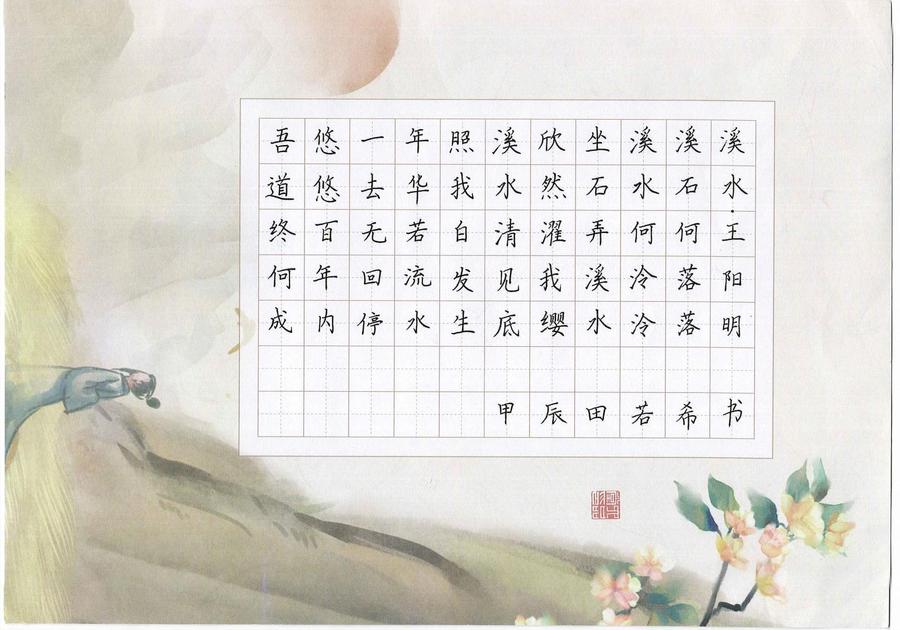 溪水·王阳明
溪石何落落
溪水何泠泠
坐石弄溪水
欣然濯我缨
溪水清见底
照我白发生
年华若流水
一去无回停
悠悠百年内
吾道终何成
甲辰田若希书